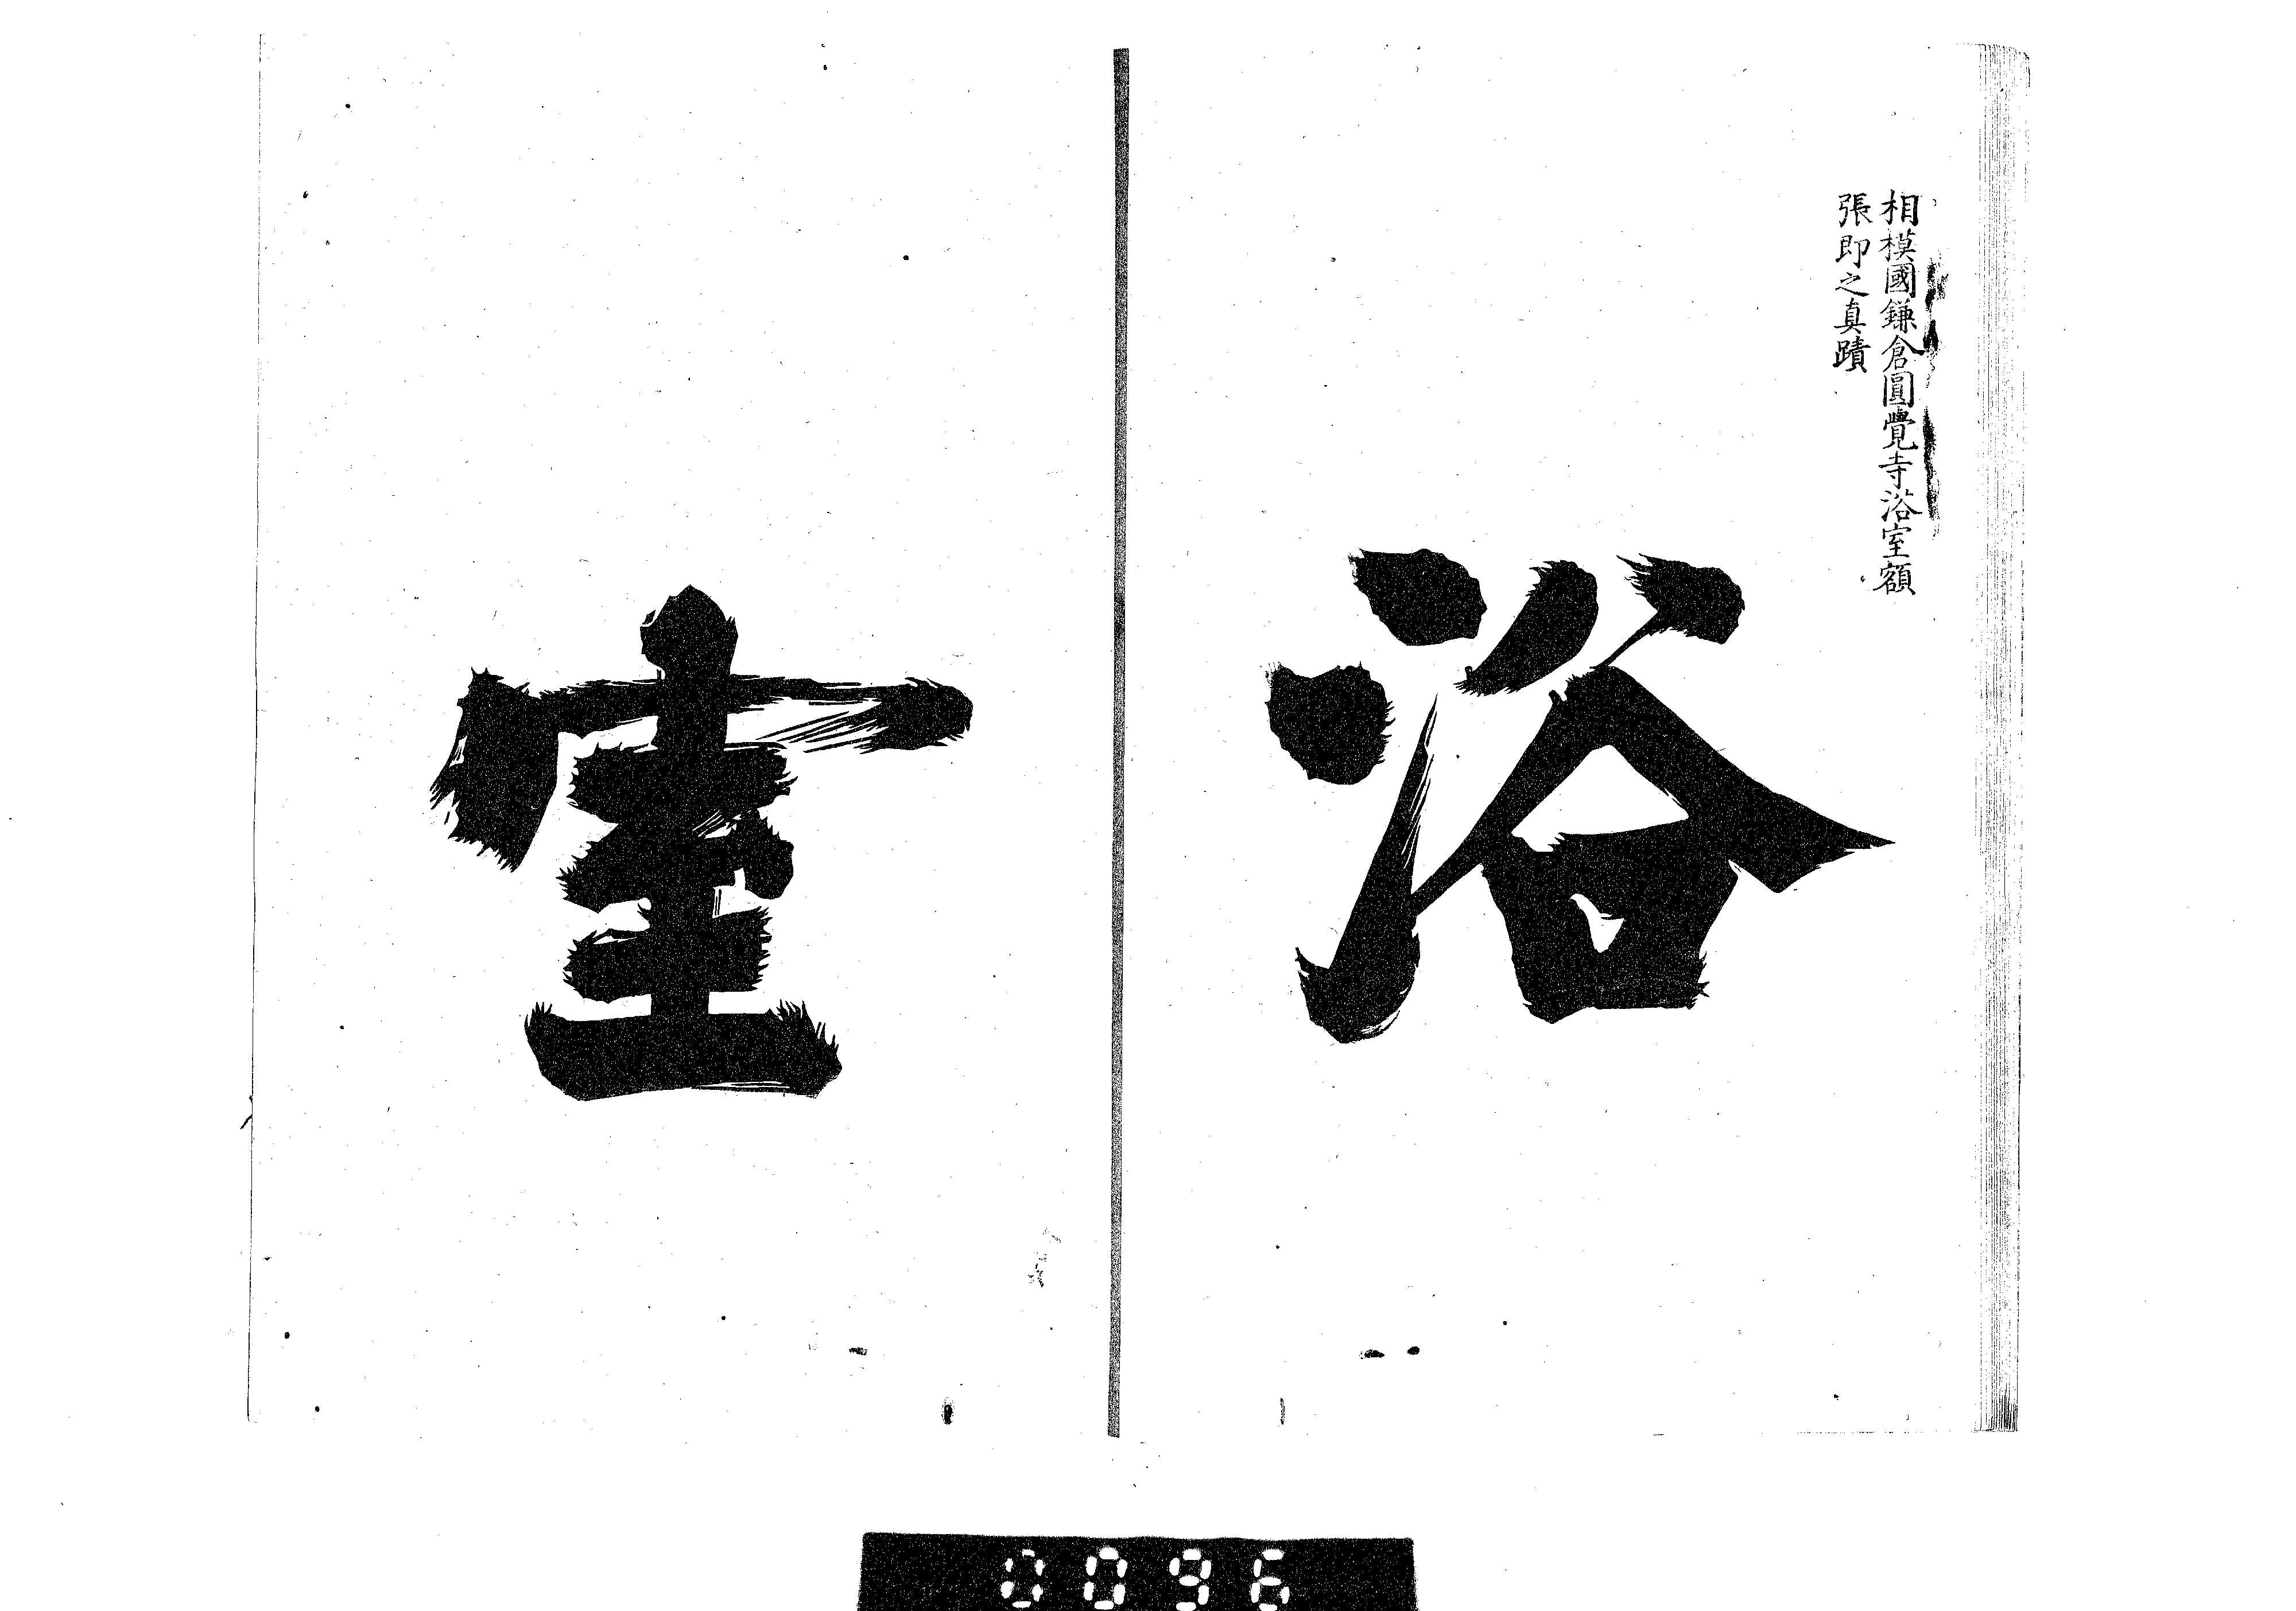 相模國鎌倉圓覺寺浴室額
張即之真蹟
浴
室
0096